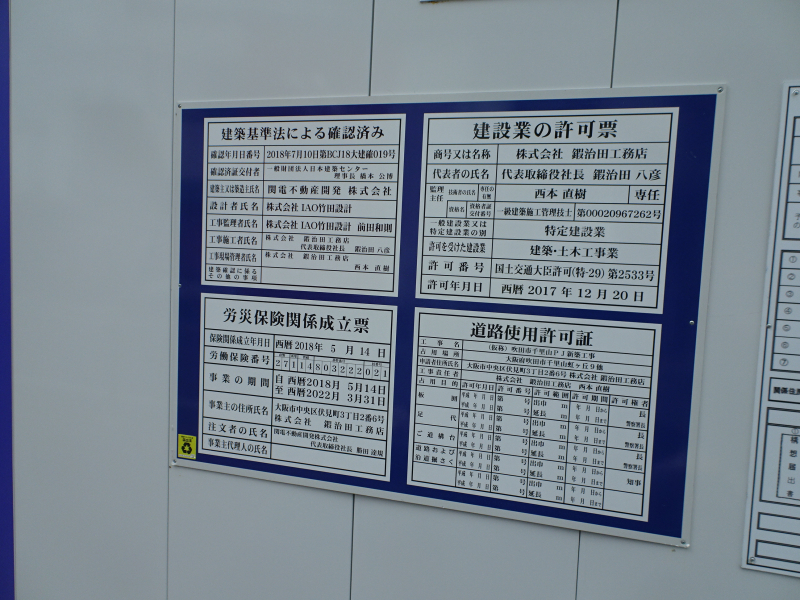 建築基準法による確認済み
確認年月日番号 2018年7月10日第BCJ18大建確019号
確認済証交付者 一般財団法人日本建築センター
理事長 橋本 公博
建築主又は築造主氏名 関電不動産開発 株式会社
設計者氏名 株式会社 IAO竹田設計
工事監理者氏名 株式会社 IAO竹田設計 前田和則
工事施工者氏名 株式会社 鍜治田工務店
代表取締役社長 鍜治田 八彦
工事現場管理者氏名 株式会社 鍜治田工務店
西本 直樹
建築確認に係る
その他の事項
建設業の許可票
商号又は名称 株式会社 鍜治田工務店
代表者の氏名 代表取締役社長 鍜治田 八彦
監理
主任 技術者の氏名 専任の
有無 西本 直樹 専任
資格名 資格者証
交付番号 一級建築施工管理技士 第00020967262号
一般建設業又は
特定建設業の別 特定建設業
許可を受けた建設業 建築・土木工事業
許可番号 国土交通大臣許可(特-29) 第2533号
許可年月日 西暦 2017 年 12 月 20 日
労災保険関係成立票
保険関係成立年月日 西暦 2018年 5 月 14 日
労働保険番号 27114803222021
事業の期間 自 西暦2018月 5月14日
至 西暦2022月 3月31日
事業主の住所氏名 大阪市中央区伏見町3丁目2番6号
株式会社 鍜治田工務店
注文者の氏名 関電不動産開発株式会社
代表取締役社長 勝田 達規
事業主代理人の氏名
道路使用許可証
工事名 (仮称) 吹田市千里山PJ新築工事
占用場所 大阪府吹田市千里山虹ヶ丘9他
申請者住所氏名 大阪市中央区伏見町3丁目2番6号 株式会社 鍜治田工務店
工事責任者 株式会社 鍜治田工務店 西本 直樹
占用目的 許可年月日 許可番号 許可範囲 許可期間 許可権者
板囲 平成 年 月 日 第 号 出巾 m 年 月 日から 長
平成 年 月 日 第 号 延長 m 年 月 日まで 警察署長
足代 平成 年 月 日 第 号 出巾 m 年 月 日から 長
平成 年 月 日 第 号 延長 m 年 月 日まで 警察署長
ご道構台 平成 年 月 日 第 号 出巾 m 年 月 日から 長
平成 年 月 日 第 号 延長 m 年 月 日まで 警察署長
道路および
沿道掘さく 平成 年 月 日 第 号 出巾 m 年 月 日から 知事
平成 年 月 日 第 号 延長 m 年 月 日まで
①
②
③
④
⑤
⑥
⑦